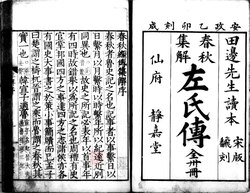 安政乙卯刻成
田邉先生讀本 宋版翻刻
春秋集解
左氏傳 全卅冊
仙府 靜嘉堂
春秋左氏傳序
春秋者魯史記之名也記事者以事繫日以
日繫月以月繫時以時繫年所以紀遠近別
同異也故史之所記必表年以首事年
有四時故錯舉以為所記之名也周禮有史
官掌邦國四方之事達四方之志諸侯亦各
有國史大事書之於策小事簡牘而已孟子
曰楚謂之檮杌晉謂之乘而魯謂之春秋其
實一也